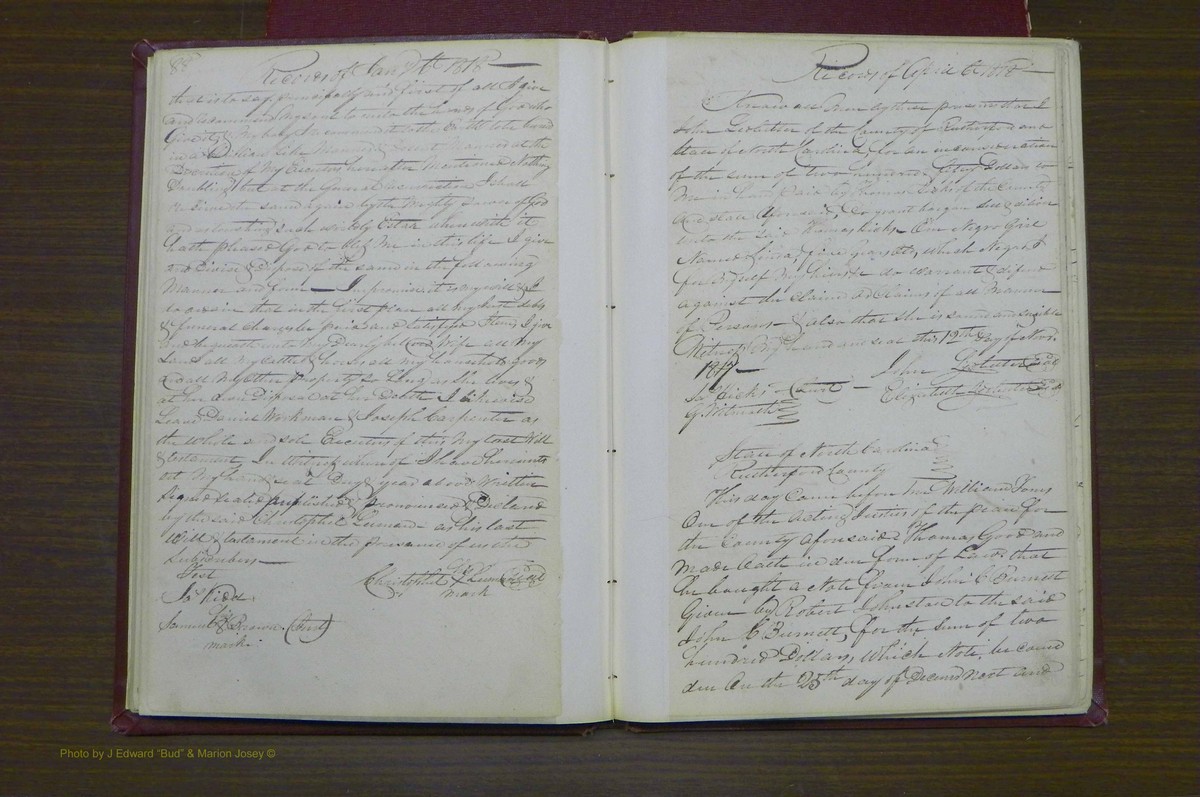 Records of Jan 9th 1818
that is to say, principally and first of all I give
and recommend my soul unto the hands of God who
Gave it, & My body I recommend to the Earth to be buried
in a Christian like Manner Decent Manner at the
Discretion of My Executors hereafter Mentioned Nothing
Doubting that at the General resurrection I shall
Receive the same again by the Mighty power of God
and as touching such worldly Estate wherewith it
hath pleased God to bless Me in this life I give
and Devise & Dispose of the same in the following
Manner and form Imprimis, it is my will & I
do ordain that in the first place all my Just debts
& funeral charges be paid and satisfied Items, I give
and bequeath unto My Wife all My
Land all my Cattle & horses all my household goods
and all My other Property so long as she lives &
at her own Disposal at her Death I likewise
Leave Daniel Workman & Joseph Carpenter as
the Whole and sole Executors of this My last Will
& testament In Witness whereof I have hereunto
set My hand & seal Day & year above Written
Signed sealed published & pronounced & Declared
by the said Christopher as his last
Will & testament in the presence of us the
Subscribers
Test
Christopher his X mark Seal
Samuel his X Brown (Jurat)
mark
Records of April 6th 1818
Know all Men by these presents that I
John of the County of Rutherford and
State of North Carolina, for and in consideration
of the sum of two hundred & fifty Dollars to
Me in hand Paid by Thomas Hicks of the County
and State Aforesaid, do grant bargain sell & deliver
unto the said Thomas Hicks One Negro Girl
Named Linda, five years old, which Negro I
for Myself My heirs &c do warrant & defend
against the Claim and Claims of all Manner
of Persons & also that she is sound and sensible
Witness My hand and seal this 12th Day of Novr.
1817
John Seal
Hicks (Jurat) Elizabeth Seal
State of North Carolina
Rutherford County
This day Came before me William Toms
One of the Acting Justices of the peace for
the County aforesaid Thomas Good and
Made Oath in due form of Law that
he bought a Note from John C Burnett
Given by Robert Johnston to the said
John C Burnett, for the Sum of two
hundred Dollars, Which Note, became
due On the 25th day of Decemr Next and
Photo by J Edward "Bud" & Marion Josey ©